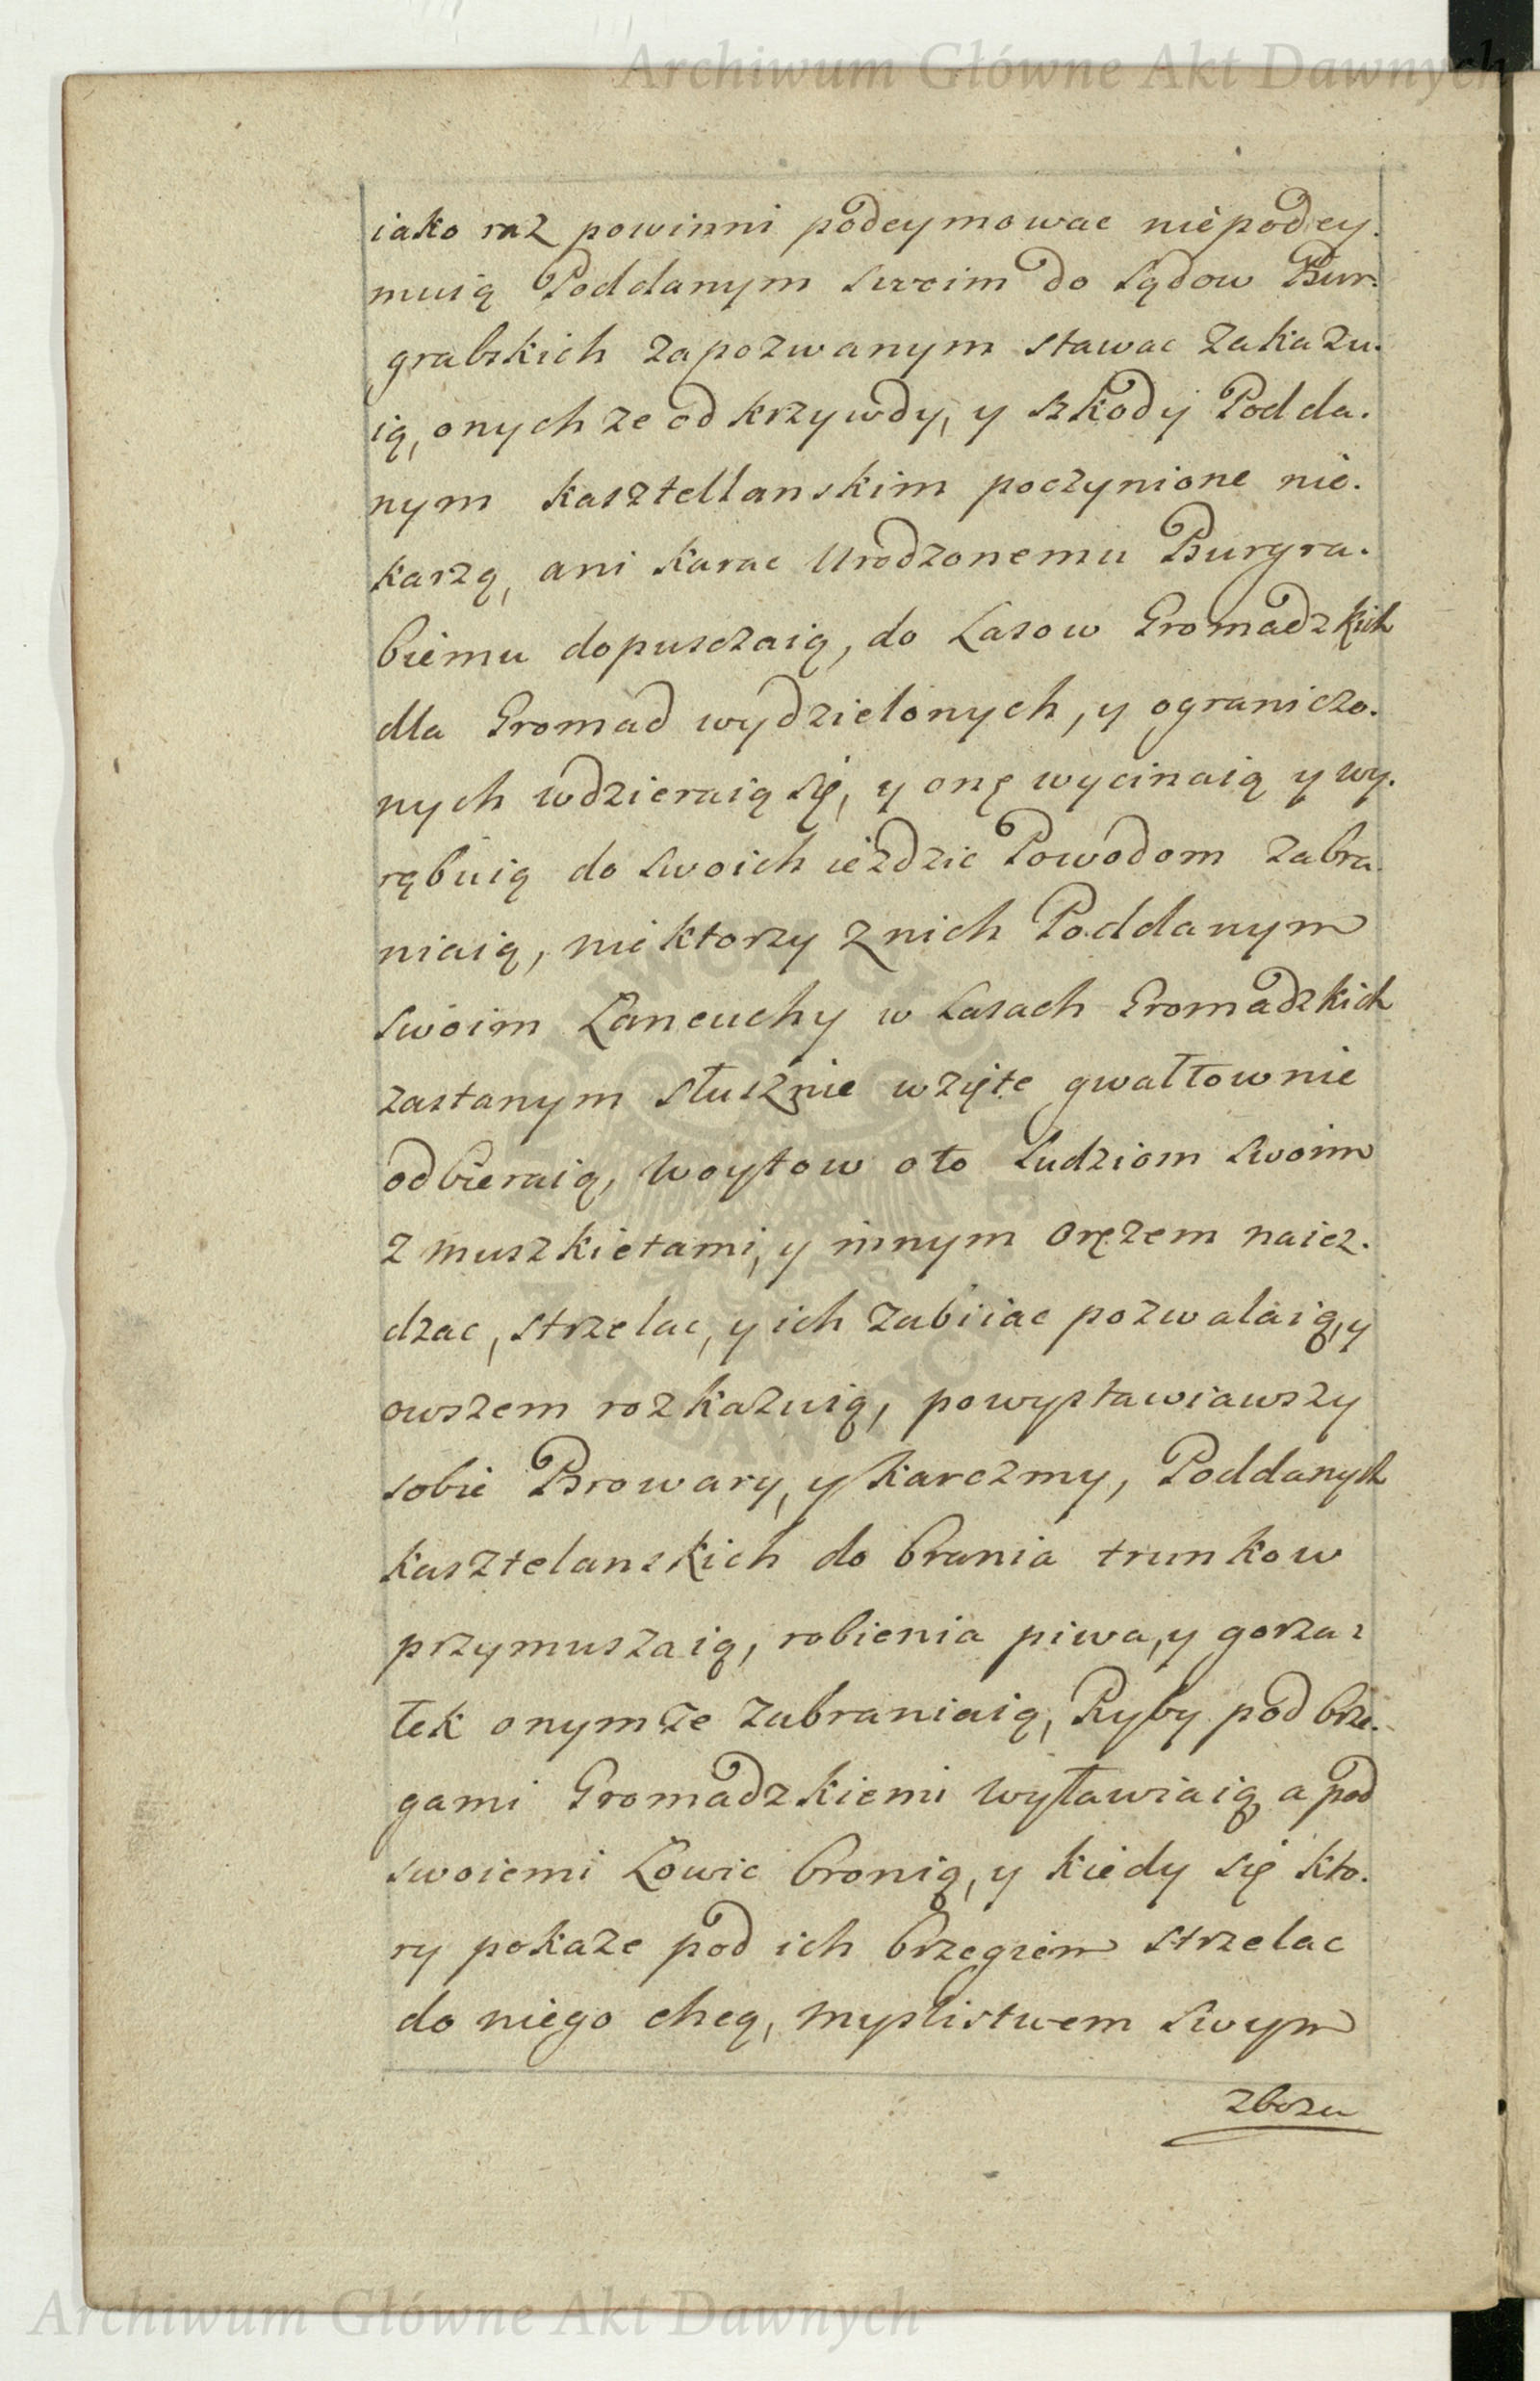 Archiwum Główne Akt Dawnych
iako raz powinni podeymowac niepodey.
muią Poddanym swoim do Sądow Bur.
grabskich zapozwanym stawac zakazu.
ią, onychze od krzywdy, y szkody Podda.
nym kasztellanskim poczynione nie.
karzą, ani karac Urodzonemu Burgra.
biemu dopusczaią, do Lasow Gromadzkich
dla Gromad wydzielonych, y ograniczo.
nych wdzieraią się, y onę wycinaią y wy.
rębuią do swoich ieździc Powodom zabra.
niaią, niektorzy z nich Poddanym
swoim Łancuchy w Lasach Gromadzkich
zastanym słusznie wzięte gwałtownie
odbieraią, Woytow oto Ludziom swoim
z muszkietami, y innym orężem naiez.
dzac, strzelac, y ich zabiiac pozwalaią, y
owszem rozkazuią, powystawiawszy
sobie Browary, y karczmy, Poddanych
kasztelanskich do brania trunkow
przymuszaią, robienia piwa, y gorza:
łek onymże zabraniaią, Ryby pod brze.
gami Gromadzkiemi wyławiaią a pod
swoiemi Łowic bronią, y kiedy się kto.
ry pokaże pod ich brzegiem strzelac
do niego chcą, myslistwem swym
zboza
ARCHIWUM GŁÓWNE AKT DAWNYCH
Archiwum Główne Akt Dawnych